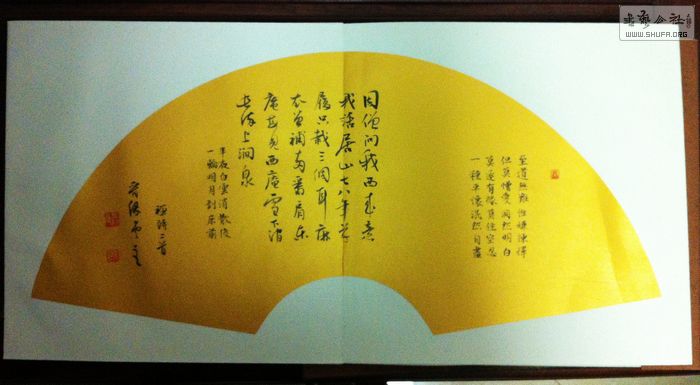 書藝公社
WWW.SHUFA.ORG
至道無難惟嫌揀擇
但莫憎愛洞然明白
莫逐有緣勿住空忍
一種平懷泯然自盡
因僧问我西来意
我話居山七八年草
履只栽三個耳麻
衣曾補兩番肩东
庵每见西庵雪下澗
长流上澗泉
半夜白雲消散後
一輪明月到床前
禪詩二首